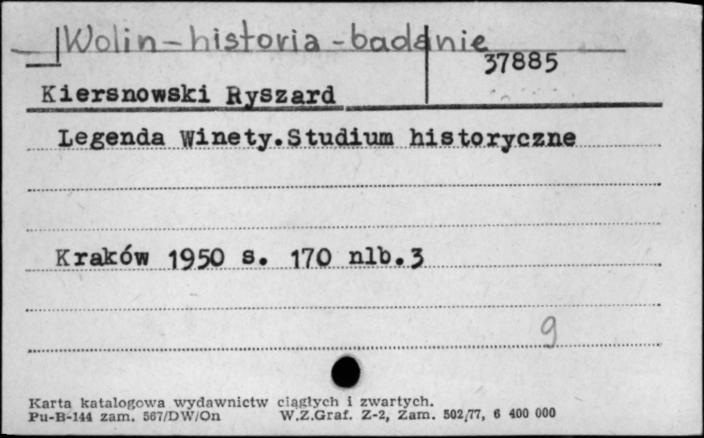 Wolin - historia - badanie
37885
Kiersnowski Ryszard
Legenda Winety.Studium historyczne
Kraków 1950 s. 170 nlb.3
9
Karta katalogowa wydawnictw ciągłych i zwartych.
Pu-B-144 zam. 567/DW/On W.Z.Graf. Z-2, Zam. 502/77, 6 400 000